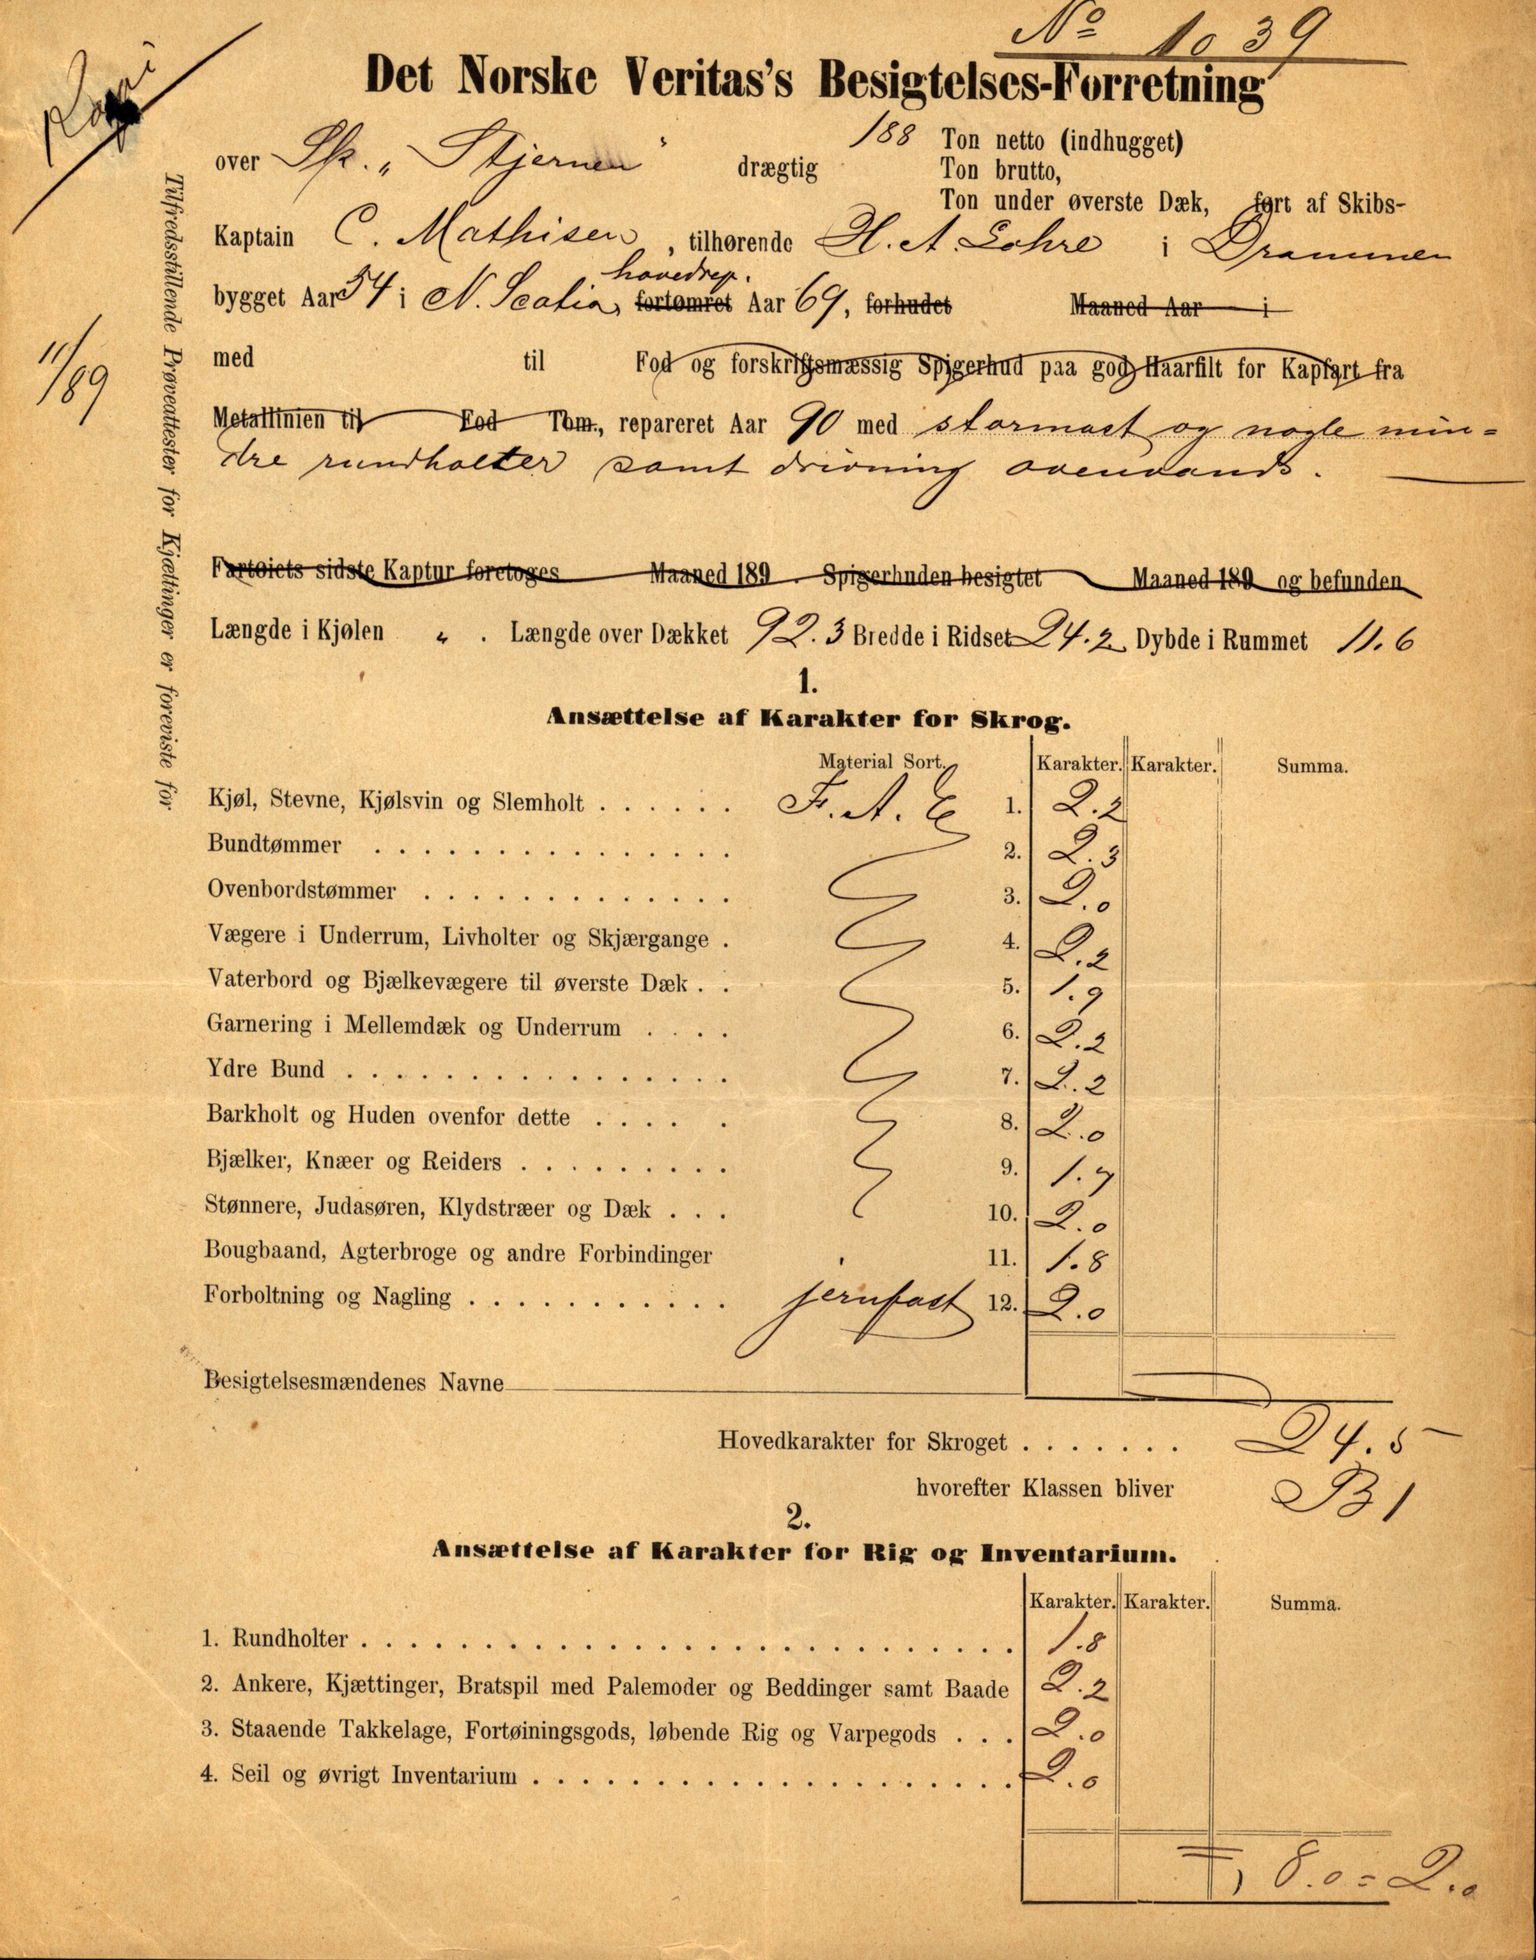 No 1039
Kopi
Det Norske Veritas's Besigtelses-Forretning
over Sk. „Stjernen" drægtig 188 Ton netto (indhugget)
Ton brutto,
Ton under øverste Dæk, ført af Skibs-
Kaptain C. Mathisen, tilhørende H. A. Lohre i Drammen
hovedrep.
bygget Aar 54 i N. Scotia, fortømret Aar 69, forhudet Maaned Aar i
11/89
med til Fod og forskriftsmæssig Spigerhud paa god Haarfilt for Kapfart fra
Metallinien til Fod Tom., repareret Aar 90 med stormast og nogle min=
dre rundholter samt drivning ovenvands.
Fartøiets sidste Kaptur foretoges Maaned 189 . Spigerhuden besigtet Maaned 189 og befunden
Længde i Kjølen „ . Længde over Dækket 92.3 Bredde i Ridset 24.2 Dybde i Rummet 11.6
Tilfredsstillende Prøveattester for Kjættinger er foreviste for
1.
Ansættelse af Karakter for Skrog.
Material Sort. Karakter. Karakter. Summa.
Kjøl, Stevne, Kjølsvin og Slemholt . . . . . . F. A. E 1. 2.2
Bundtømmer . . . . . . . . . . . . . . . 2. 2.3
Ovenbordstømmer . . . . . . . . . . . . . 3. 2.0
Vægere i Underrum, Livholter og Skjærgange . 4. 2.2
Vaterbord og Bjælkevægere til øverste Dæk . . 5. 1.9
Garnering i Mellemdæk og Underrum . . . . 6. 2.2
Ydre Bund . . . . . . . . . . . . . . . . 7. 2.2
Barkholt og Huden ovenfor dette . . . . . 8. 2.0
Bjælker, Knæer og Reiders . . . . . . . . . 9. 1.7
Stønnere, Judasøren, Klydstræer og Dæk . . . 10. 2.0
Bougbaand, Agterbroge og andre Forbindinger 11. 1.8
Forboltning og Nagling . . . . . . . . . . . jernfast 12. 2.0
Besigtelsesmændenes Navne
Hovedkarakter for Skroget . . . . . . . 24.5
hvorefter Klassen bliver B 1
2.
Ansættelse af Karakter for Rig og Inventarium.
Karakter. Karakter. Summa.
1. Rundholter . . . . . . . . . . . . . . . . . . . . . . . 1.8
2. Ankere, Kjættinger, Bratspil med Palemoder og Beddinger samt Baade 2.2
3. Staaende Takkelage, Fortøiningsgods, løbende Rig og Varpegods . . . 2.0
4. Seil og øvrigt Inventarium . . . . . . . . . . . . . . . . . 2.0
8.0 = 2.0